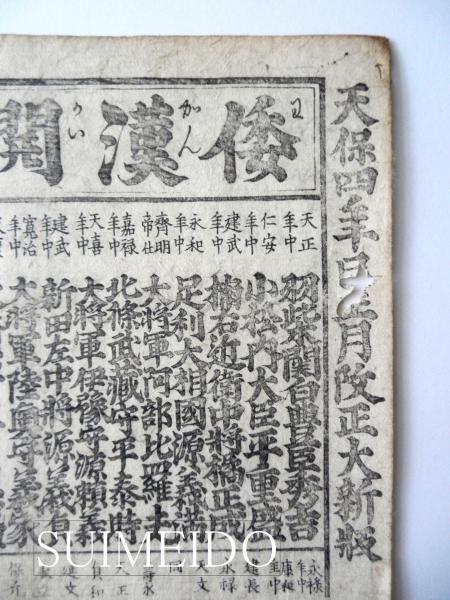 天保四年巳正月改正大新版
倭漢
わ かん かい
天正年中
羽柴関白豊臣秀吉
仁安年中
小松内大臣平重盛
建武年中
楠右近衛中将橘正成
永和年中
足利大相國源義満
齊明帝仕
大将軍阿部比羅夫
嘉禄年中
北條武蔵守平泰時
天喜年中
大将軍伊豫守源頼義
建武年中
新田左中将源義貞
寛治年中
大将軍陸奥守義家
永禄年中
康和年中
建長
永禄
天文
壽永
天正
貞和
SUIMEIDO